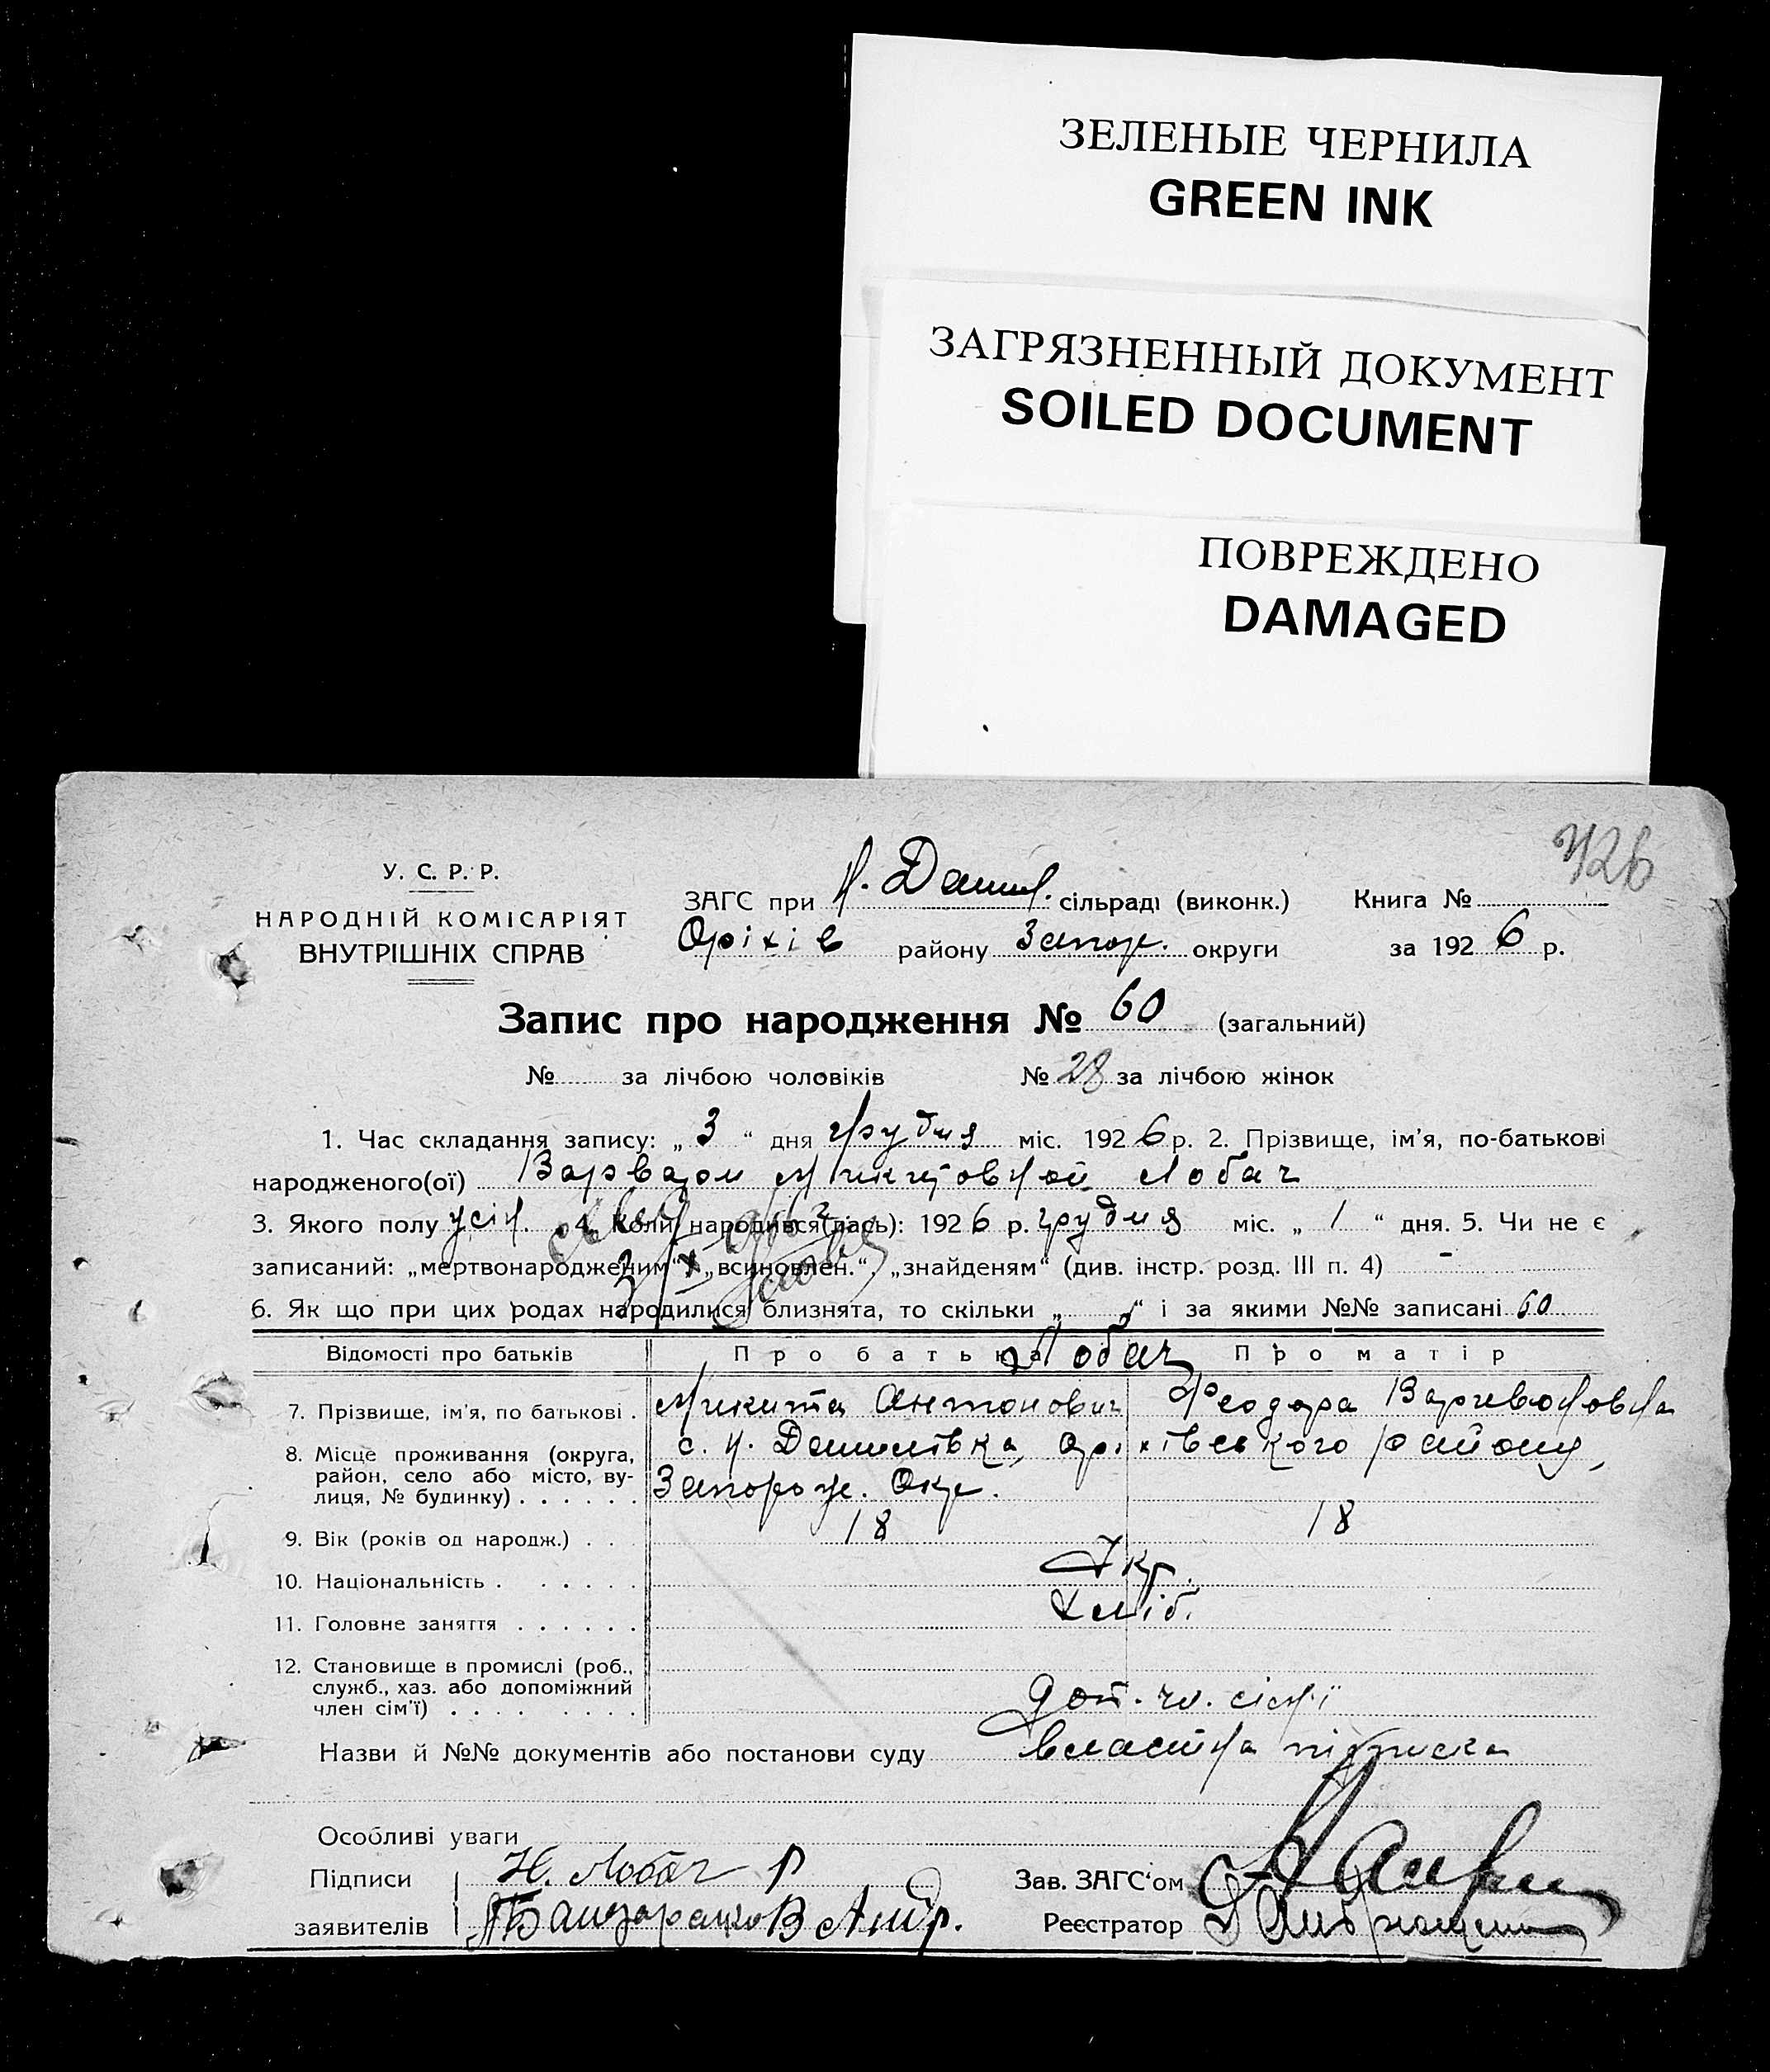 ЗЕЛЕНЫЕ ЧЕРНИЛА
GREEN INK
ЗАГРЯЗНЕННЫЙ ДОКУМЕНТ
SOILED DOCUMENT
ПОВРЕЖДЕНО
DAMAGED
У. С. Р. Р.
НАРОДНІЙ КОМІСАРІЯТ
ВНУТРІШНІХ СПРАВ
ЗАГС при Н. Данил. сільраді (виконк.) Книга №
Оріхів району Запор. округи за 1926 р.
Запис про народження № 60 (загальний)
№ за лічбою чоловіків № 28 за лічбою жінок
1. Час складання запису: „3“ дня грудня міс. 1926 р. 2. Прізвище, ім’я, по-батькові
народженого(ої) Лобач
3. Якого полу 4. Коли народився(лась): 1926 р. грудня міс. „1“ дня. 5. Чи не є
записаний: „мертвонародженим“, „всиновлен.“, „знайденям“ (див. інстр. розд. III п. 4) -
6. Як що при цих родах народилися близнята, то скільки „ “ і за якими №№ записані 60
Відомості про батьків Про батька Лобач Про матір
7. Прізвище, ім’я, по батькові . Микита Антонович Феодора
8. Місце проживання (округа, с. Н. Данилівка, Оріхівського району,
район, село або місто, ву-
лиця, № будинку) . . . . . . Запорож. Окр.
9. Вік (років од народж.) . . 18 18
10. Національність . . . . . . Укр.
11. Головне заняття . . . . . . Хліб.
12. Становище в промислі (роб.,
служб., хаз. або допоміжний
член сім’ї) . . . . . . . . доп. чл. сім'ї
Назви й №№ документів або постанови суду власна підписка
Особливі уваги
Підписи Н. Лобач Зав. ЗАГС‘ом
заявителів Реєстратор